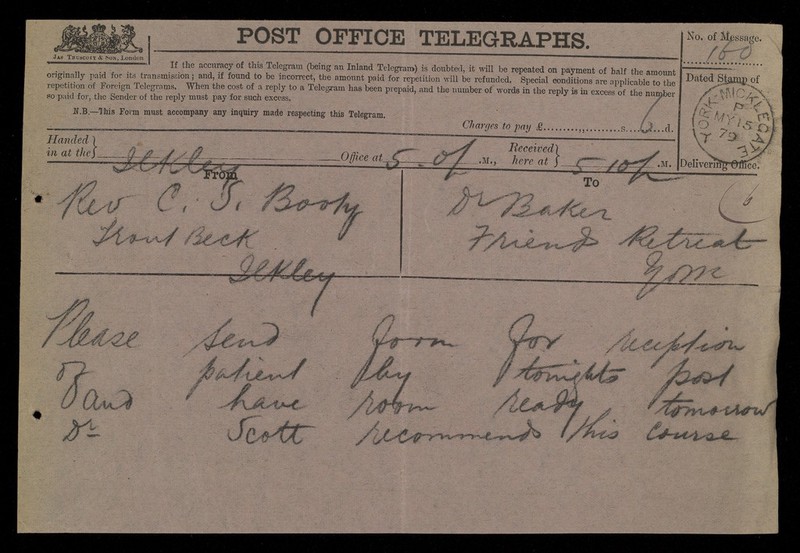 POST OFFICE TELEGRAPHS.
No. of Message.
160
JAS TRUSCOTT & SON, London
If the accuracy of this Telegram (being an Inland Telegram) is doubted, it will be repeated on payment of half the amount
originally paid for its transmission; and, if found to be incorrect, the amount paid for repetition will be refunded. Special conditions are applicable to the
repetition of Foreign Telegrams. When the cost of a reply to a Telegram has been prepaid, and the number of words in the reply is in excess of the number
so paid for, the Sender of the reply must pay for such excess.
N.B.—This Form must accompany any inquiry made respecting this Telegram.
Dated Stamp of
YORK-MICKLEGATE
P
MY 15
79
Charges to pay £ s. 6 d.
Handed in at the Ilkley Office at 5.0 p .M., Received here at 5 10 p .M. Delivering Office.
From
Rev C. J. Booty
Trout Beck
Ilkley
To
6
Dr Baker
Friends Retreat
York
Please send form for reception
of patient by tonights post
and have room ready tomorrow
Dr Scott recommends this course